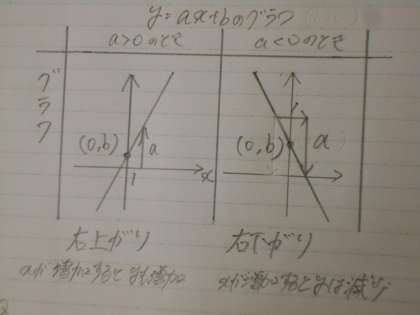 y=ax+bのグラフ
a>0のとき
a<0のとき
グラフ
(0,b)
a
1
x
(0,b)
a
右上がり
右下がり
xが増加するとyも増加
xが増加するとyは減少